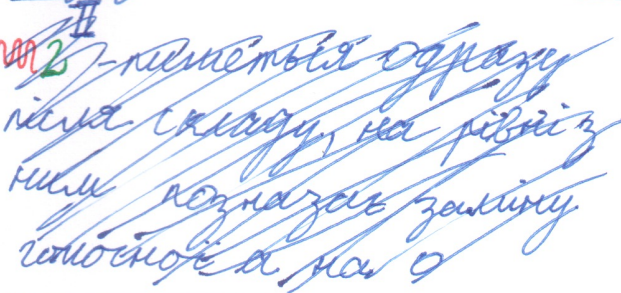 II
2 - пишеться одразу
після складу, на рівні з
ним позначає заміну
голосної а на о